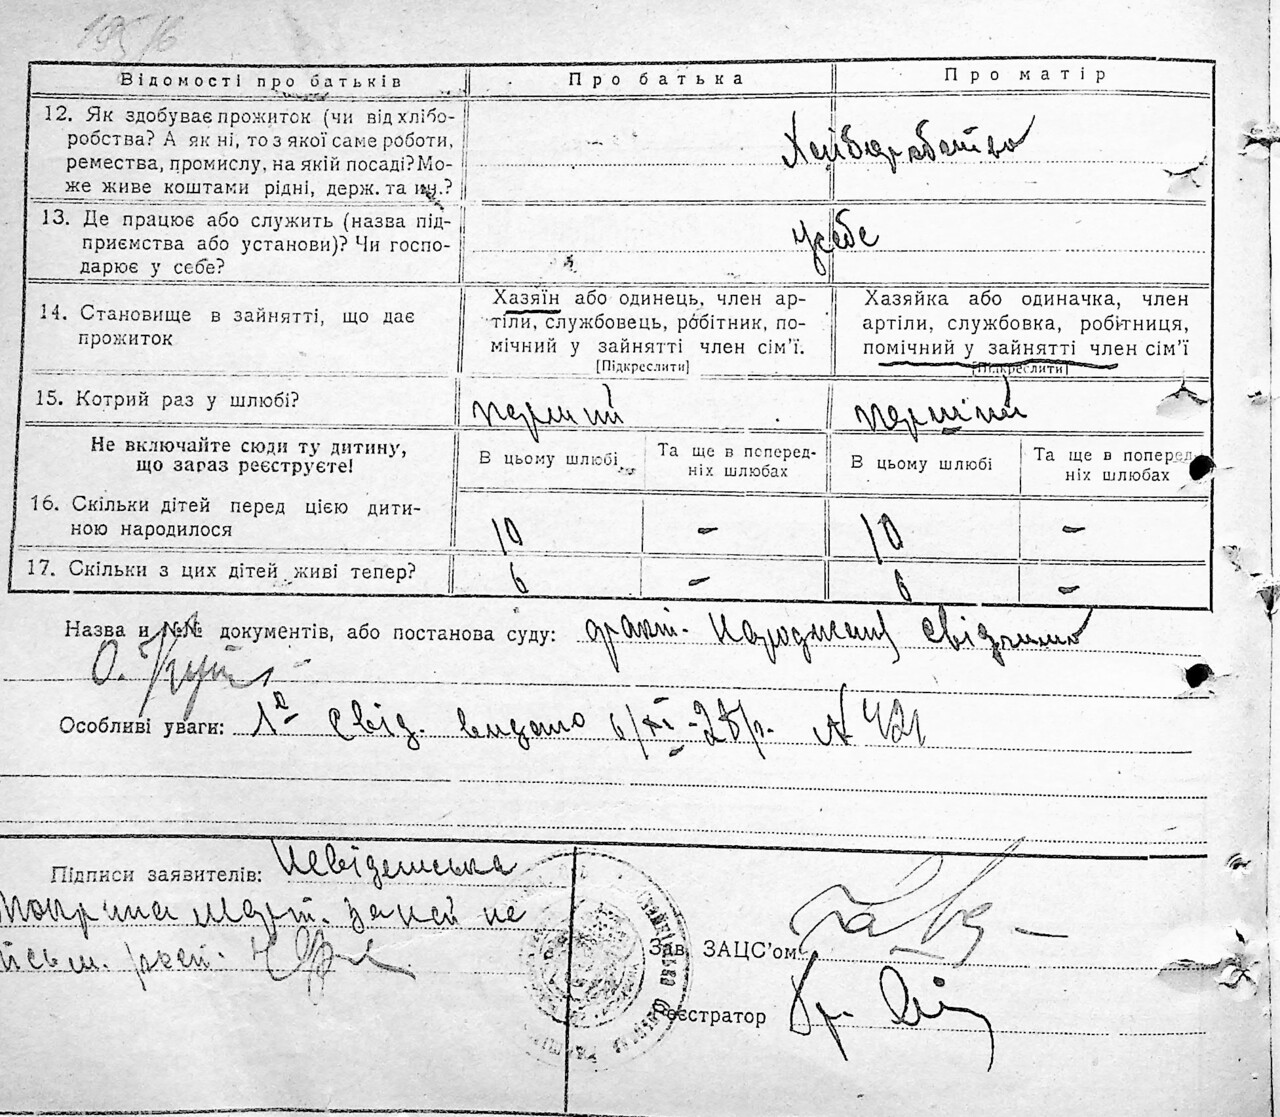 195/6
Відомості про батьків Про батька Про матір
12. Як здобуває прожиток (чи від хлібо-
робства? А як ні, то з якої саме роботи,
ремества, промислу, на якій посаді? Мо-
же живе коштами рідні, держ. та ин.?
Хліборобство
13. Де працює або служить (назва під-
приємства або установи)? Чи госпо-
дарює у себе?
у себе
14. Становище в зайнятті, що дає
прожиток
Хазяїн або одинець, член ар-
тіли, службовець, робітник, по-
мічний у зайнятті член сім’ї.
[Підкреслити]
Хазяйка або одиначка, член
артіли, службовка, робітниця,
помічний у зайнятті член сім’ї
[Підкреслити]
15. Котрий раз у шлюбі? перший перший
Не включайте сюди ту дитину,
що зараз реєструєте!
В цьому шлюбі Та ще в поперед-
ніх шлюбах В цьому шлюбі Та ще в поперед-
ніх шлюбах
16. Скільки дітей перед цією дити-
ною народилося
10 - 10 -
17. Скільки з цих дітей живі тепер? 6 - 6 -
Назва и №№ документів, або постанова суду: факт. народження свідчить
О.
Особливі уваги: свід. видано 6/XI-28р. № 421
Підписи заявителів:
за неї не
Зав. ЗАЦС’ом
Реєстратор